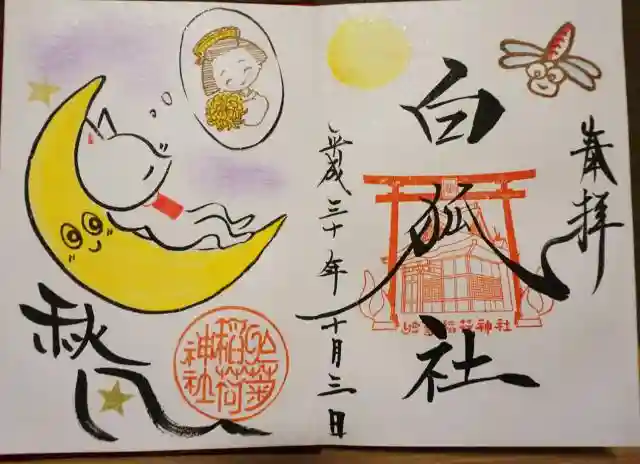 奉拝
白狐社
平成三十年十月三日
於菊稲荷神社
秋
於菊
稲荷
神社